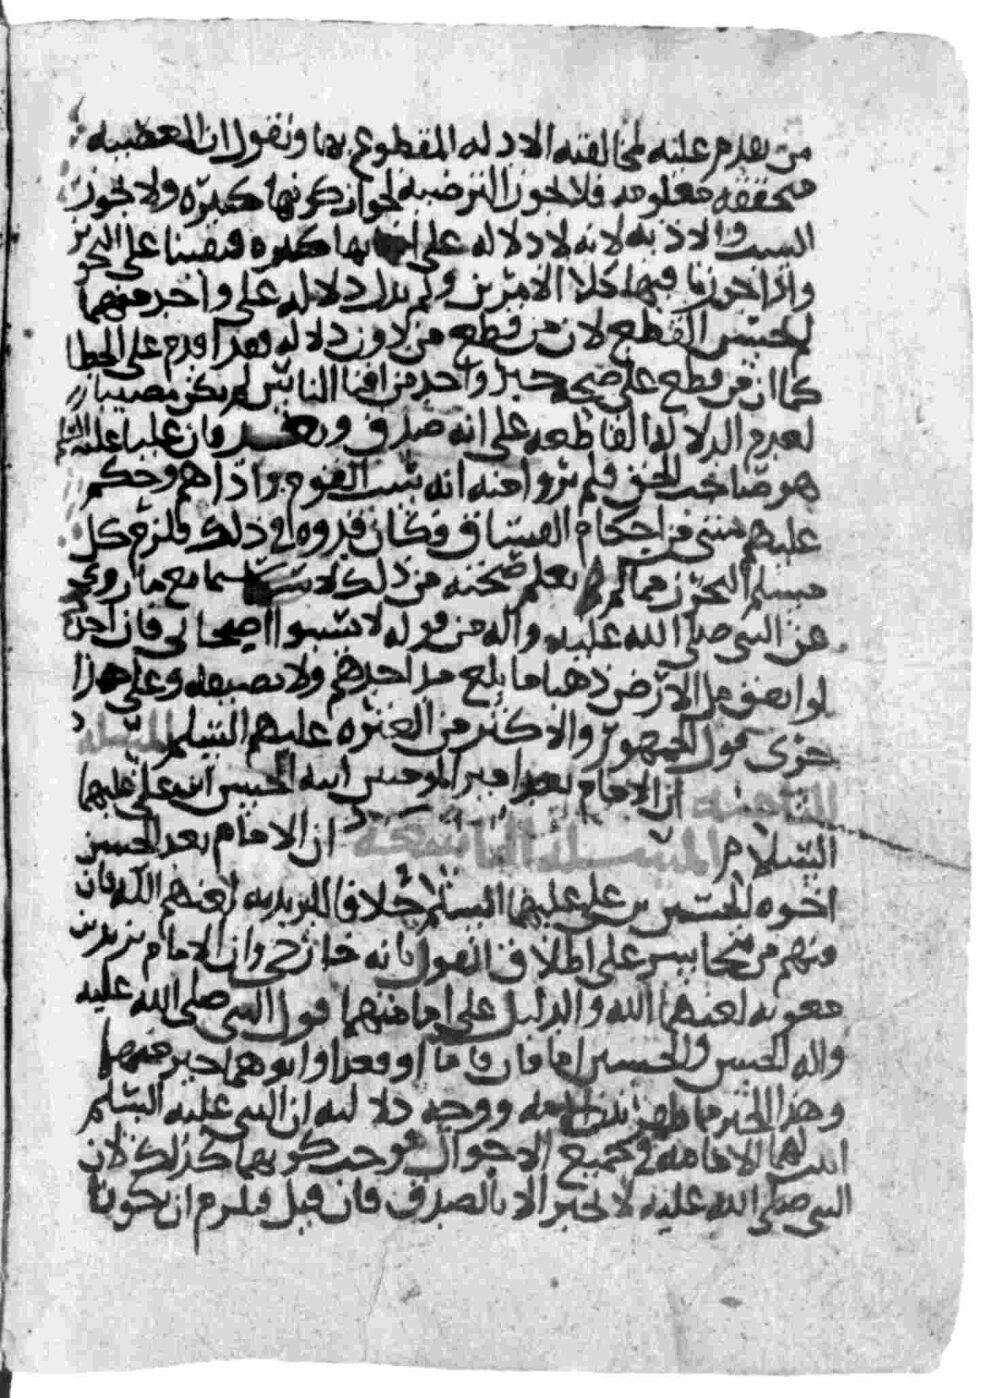 من تقدم عليه لمخالفته الادله المقطوع بها ونقول ان المعصيه
متحققه معلومه فلا تجوز الترضيه لجواز كونها كبيره ولا تجوز
السب والاذيه لانه لا دلاله على انها كبيره فبقينا على التجويز
واذا جوزنا فيها كلا الامرين ولم يدل دلاله على واحد منهما
لم يحسن القطع لان من قطع من دون دلاله فقد اقدم على الخطا
كما ان من قطع على صحه خبر واحد من افنا الناس لم يكن مصيبا
لعدم الدلاله القاطعه على انه صدق وبعد فان عليا عليه السلم
هو صاحب الحق فلم يروا منه انه سب القوم واذاهم وحكم
عليهم بشي من احكام الفساق وكان قدوه في ذلك فلزم كل
مسلم التحرز مما لم يعلم صحته من ذلك لا سيما مع ما روي
عن النبي صلى الله عليه واله من قوله لا تسبوا اصحابي فان احدكم
لو انفق مل الارض ذهبا ما بلغ مد احدهم ولا نصيفه وعلى هذا
جرى قول الجمهور والاكثر من العتره عليهم السلم المسئله
الثامنه ان الامام بعد امير المومنين ابنه الحسن ابن علي عليهما
السلام المسئله التاسعه ان الامام بعد الحسن
اخوه الحسين بن علي عليهما السلم خلافا لليزيديه لعنهم الله فان
منهم من تجاسر على اطلاق القول بانه خارجي وان الامام يزيد بن
معويه لعنهما الله والدليل على امامتهما قول النبي صلى الله عليه
واله الحسن والحسين امامان قاما او قعدا وابوهما خير منهما
وهذا الخبر مما ظهر بين الامه ووجه دلالته ان النبي عليه السلم
اثبت لهما الامامه في جميع الاحوال فوجب كونهما كذلك لان
النبي صلى الله عليه لا يخبر الا بالصدق فان قيل فيلزم ان يكونا